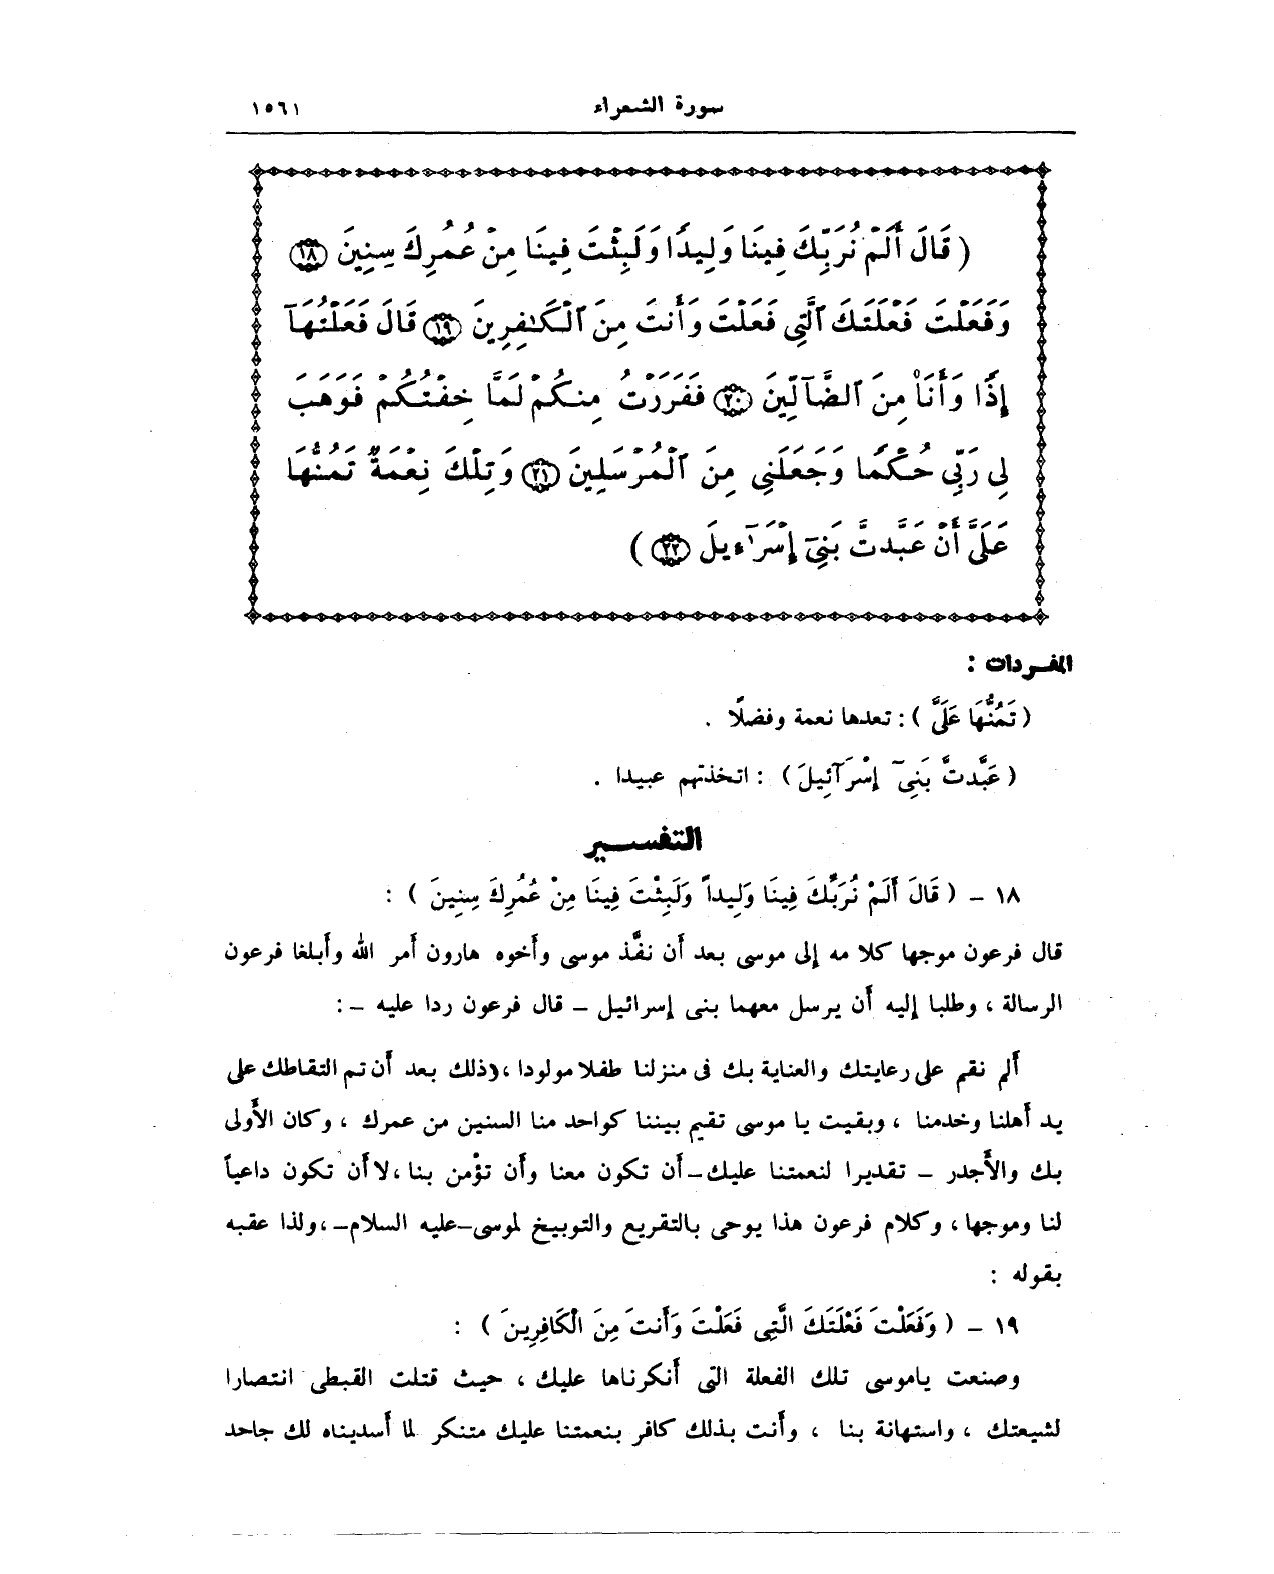 سورة الشعراء ١٥٦١
( قَالَ أَلَمْ نُرَبِّكَ فِينَا وَلِيدًا وَلَبِثْتَ فِينَا مِنْ عُمُرِكَ سِنِينَ ١٨
وَفَعَلْتَ فَعْلَتَكَ ٱلَّتِى فَعَلْتَ وَأَنتَ مِنَ ٱلْكَـٰفِرِينَ ١٩ قَالَ فَعَلْتُهَآ
إِذًا وَأَنَا۠ مِنَ ٱلضَّآلِّينَ ٢٠ فَفَرَرْتُ مِنكُمْ لَمَّا خِفْتُكُمْ فَوَهَبَ
لِى رَبِّى حُكْمًا وَجَعَلَنِى مِنَ ٱلْمُرْسَلِينَ ٢١ وَتِلْكَ نِعْمَةٌ تَمُنُّهَا
عَلَىَّ أَنْ عَبَّدتَّ بَنِىٓ إِسْرَٰٓءِيلَ ٢٢ )
المفـردات :
( تَمُنُّهَا عَلَىَّ ) : تعدها نعمة وفضلًا .
( عَبَّدتَّ بَنِىٓ إِسْرَآئِيلَ ) : اتخذتهم عبيدا .
التفســير
١٨ – ( قَالَ أَلَمْ نُرَبِّكَ فِينَا وَلِيداً وَلَبِثْتَ فِينَا مِنْ عُمُرِكَ سِنِينَ ) :
قال فرعون موجها كلا مه إلى موسى بعد أن نفَّذ موسى وأخوه هارون أمر الله وأبلغا فرعون
الرسالة ، وطلبا إليه أن يرسل معهما بنى إسرائيل – قال فرعون ردا عليه – :
ألم نقم على رعايتك والعناية بك فى منزلنا طفلا مولودا ، وذلك بعد أن تم التقاطك على
يد أهلنا وخدمنا ، وبقيت يا موسى تقيم بيننا كواحد منا السنين من عمرك ، وكان الأَولى
بك والأَجدر – تقديرا لنعمتنا عليك – أن تكون معنا وأن تؤمن بنا ، لا أن تكون داعياً
لنا وموجها ، وكلام فرعون هذا يوحى بالتقريع والتوبيخ لموسى – عليه السلام – ، ولذا عقبه
بقوله :
١٩ – ( وَفَعَلْتَ فَعْلَتَكَ الَّتِى فَعَلْتَ وَأَنتَ مِنَ الْكَافِرِينَ ) :
وصنعت ياموسى تلك الفعلة التى أنكرناها عليك ، حيث قتلت القبطى انتصارا
لشيعتك ، واستهانة بنا ، وأنت بذلك كافر بنعمتنا عليك متنكر لما أسديناه لك جاحد